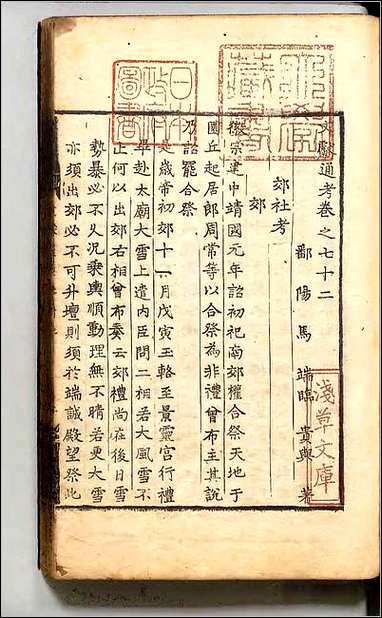 文獻通考卷之七十二
鄱陽馬 端臨 貴與 著
郊社考
郊
徽宗建中靖國元年詔初祀南郊權合祭天地于
圜丘起居郎周常等以合祭為非禮曾布主其說
乃詔罷合祭
是歲帝初郊十一月戊寅玉輅至景靈宮行禮
畢赴太廟大雪上遣内臣問二相若大風雪不
止何以出郊右相曾布奏云郊禮尚在後日雪
勢暴必不久況乘輿順動理無不晴若更大雪
亦須出郊必不可升壇則須於端誠殿望祭此
日本
政府
圖書
淺草文庫